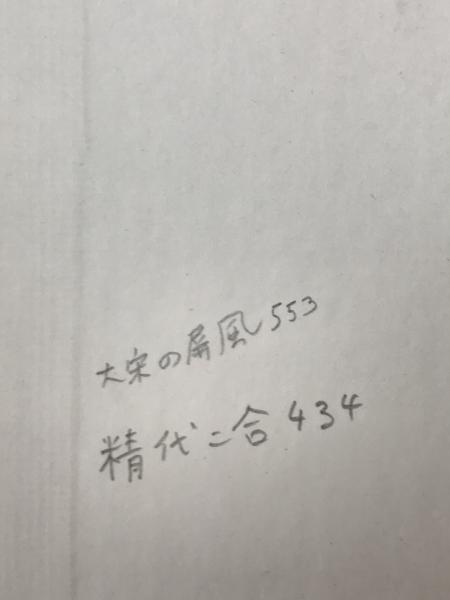 大宋の屏風553
精代二合434